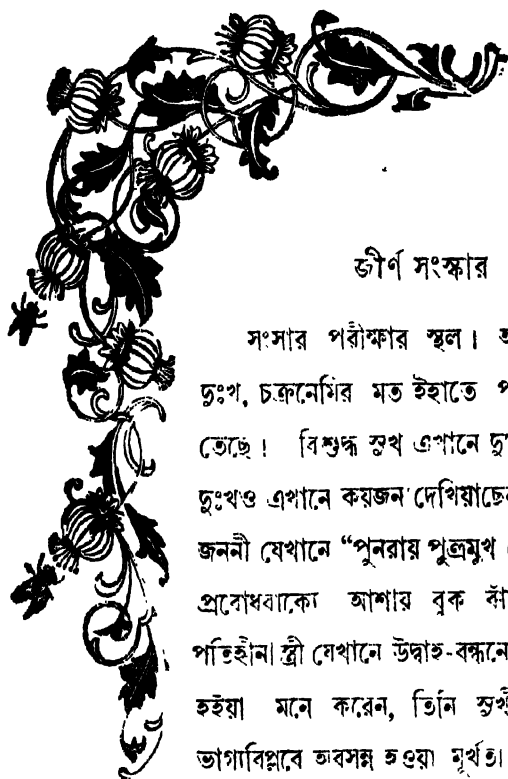 জীর্ণ সংস্কার
সংসার পরীক্ষার স্থল।
দুঃখ, চক্রনেমির মত ইহাতে
তেছে! বিশুদ্ধ সুখ এখানে
দুঃখও এখানে কয়জন দেখিয়াছে
জননী যেখানে “পুনরায় পুত্রমুখ
প্রবোধবাক্যে আশায় বুক
পতিহীনা স্ত্রী যেখানে উদ্বাহ-বন্ধনে
হইয়া মনে করেন, তিনি
ভাগ্যবিপ্লবে অবসন্ন হওয়া মূর্খতা।